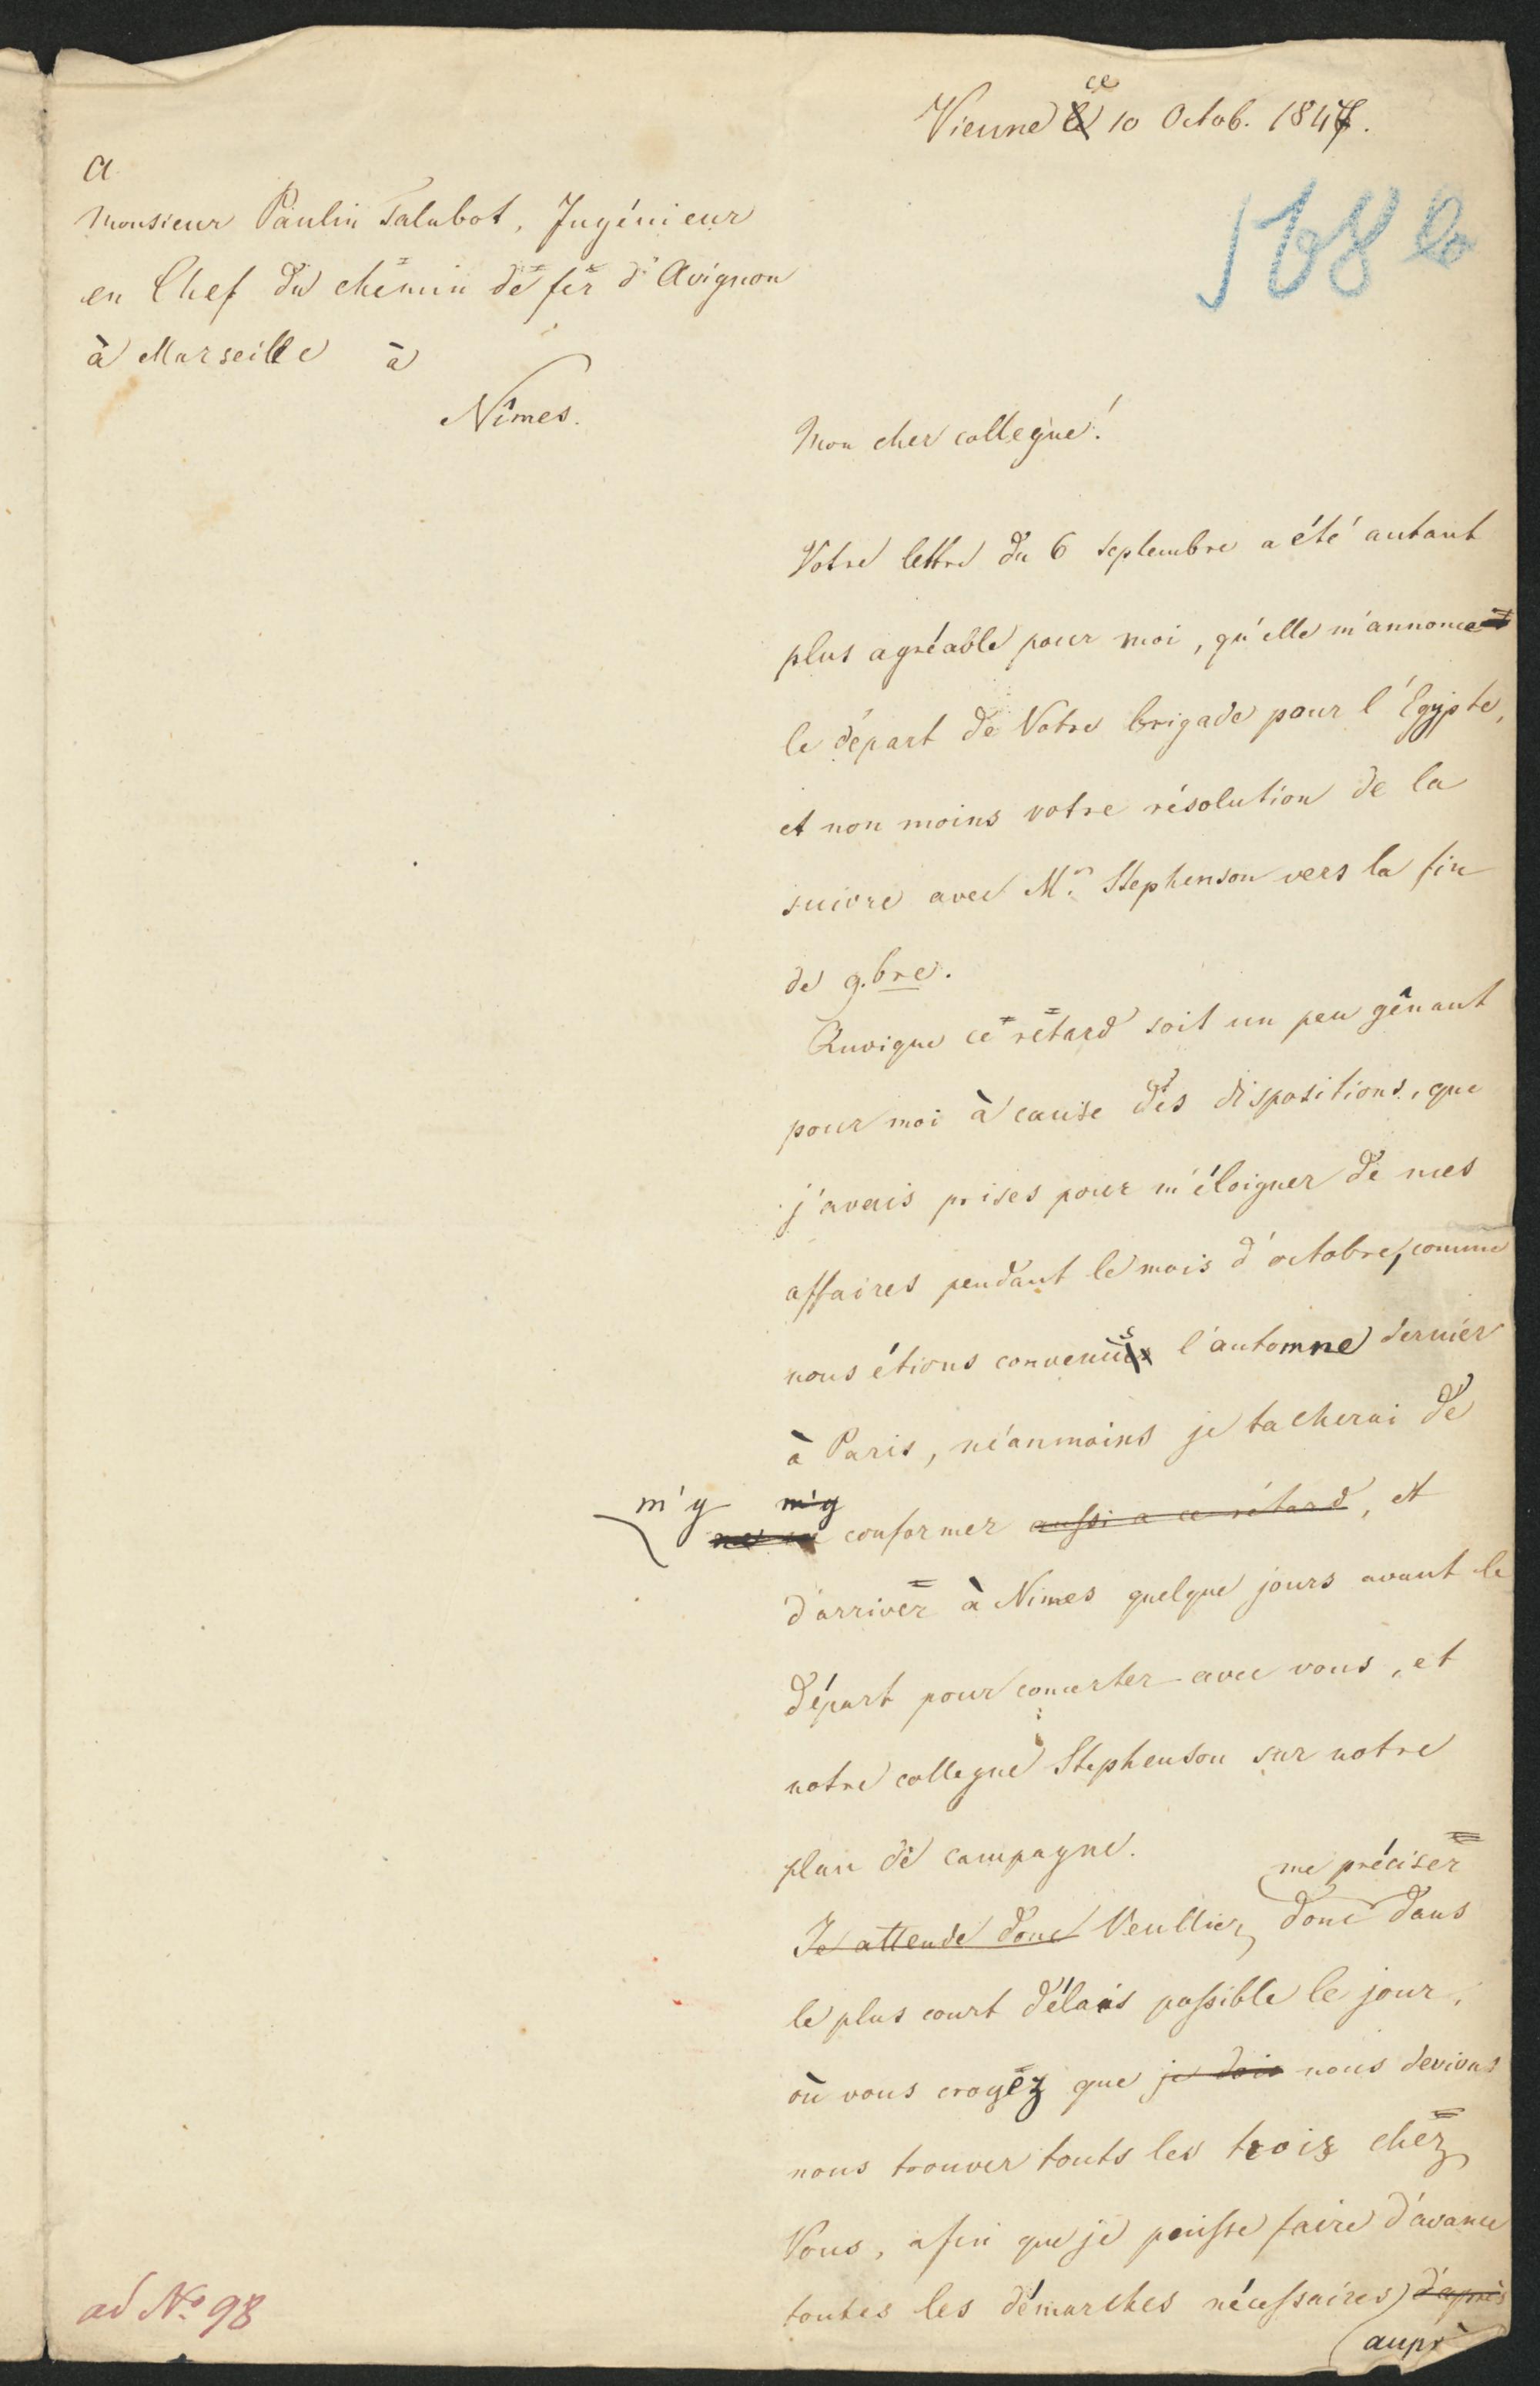 Vienne ce 10 Octob. 1847.
168 b
A
Monsieur Paulin Talabot, Ingénieur
en Chef du chemin de fer d'Avignon
à Marseille à
Nîmes.
Mon cher collegue!
Votre lettre du 6 septembre a été autant
plus agréable pour moi, qu'elle m'annonce
le départ de Votre brigade pour l'Egypte,
et non moins votre résolution de la
suivre avec Mr. Stephenson vers la fin
de 9.bre.
Quoique ce retard soit un peu gênant
pour moi à cause des dispositions, que
j'avais prises pour m'éloigner de mes
affaires pendant le mois d'octobre, comme
nous étions convenus l'automne dernier
à Paris, néanmoins je tacherai de
m'y m'y
conformer aussi a ce rétard, et
d'arriver à Nimes quelque jours avant le
départ pour concerter avec vous, et
notre collegue Stephenson sur notre
plan de campagne.
me préciser
Je attende donc Veulliez donc dans
le plus court délais possible le jour,
où vous croyez que je dois nous devions
nous trouver touts les trois chez
Vous, afin que je puisse faire d'avance
toutes les démarches nécessaires d'après
auprè
ad No. 98